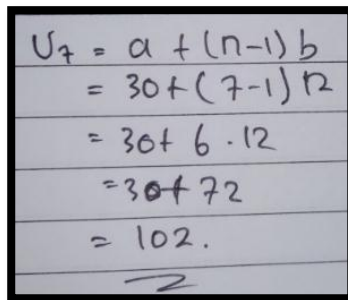 U₇ = a + (n-1) b
= 30 + (7-1) 12
= 30 + 6 . 12
= 30 + 72
= 102.